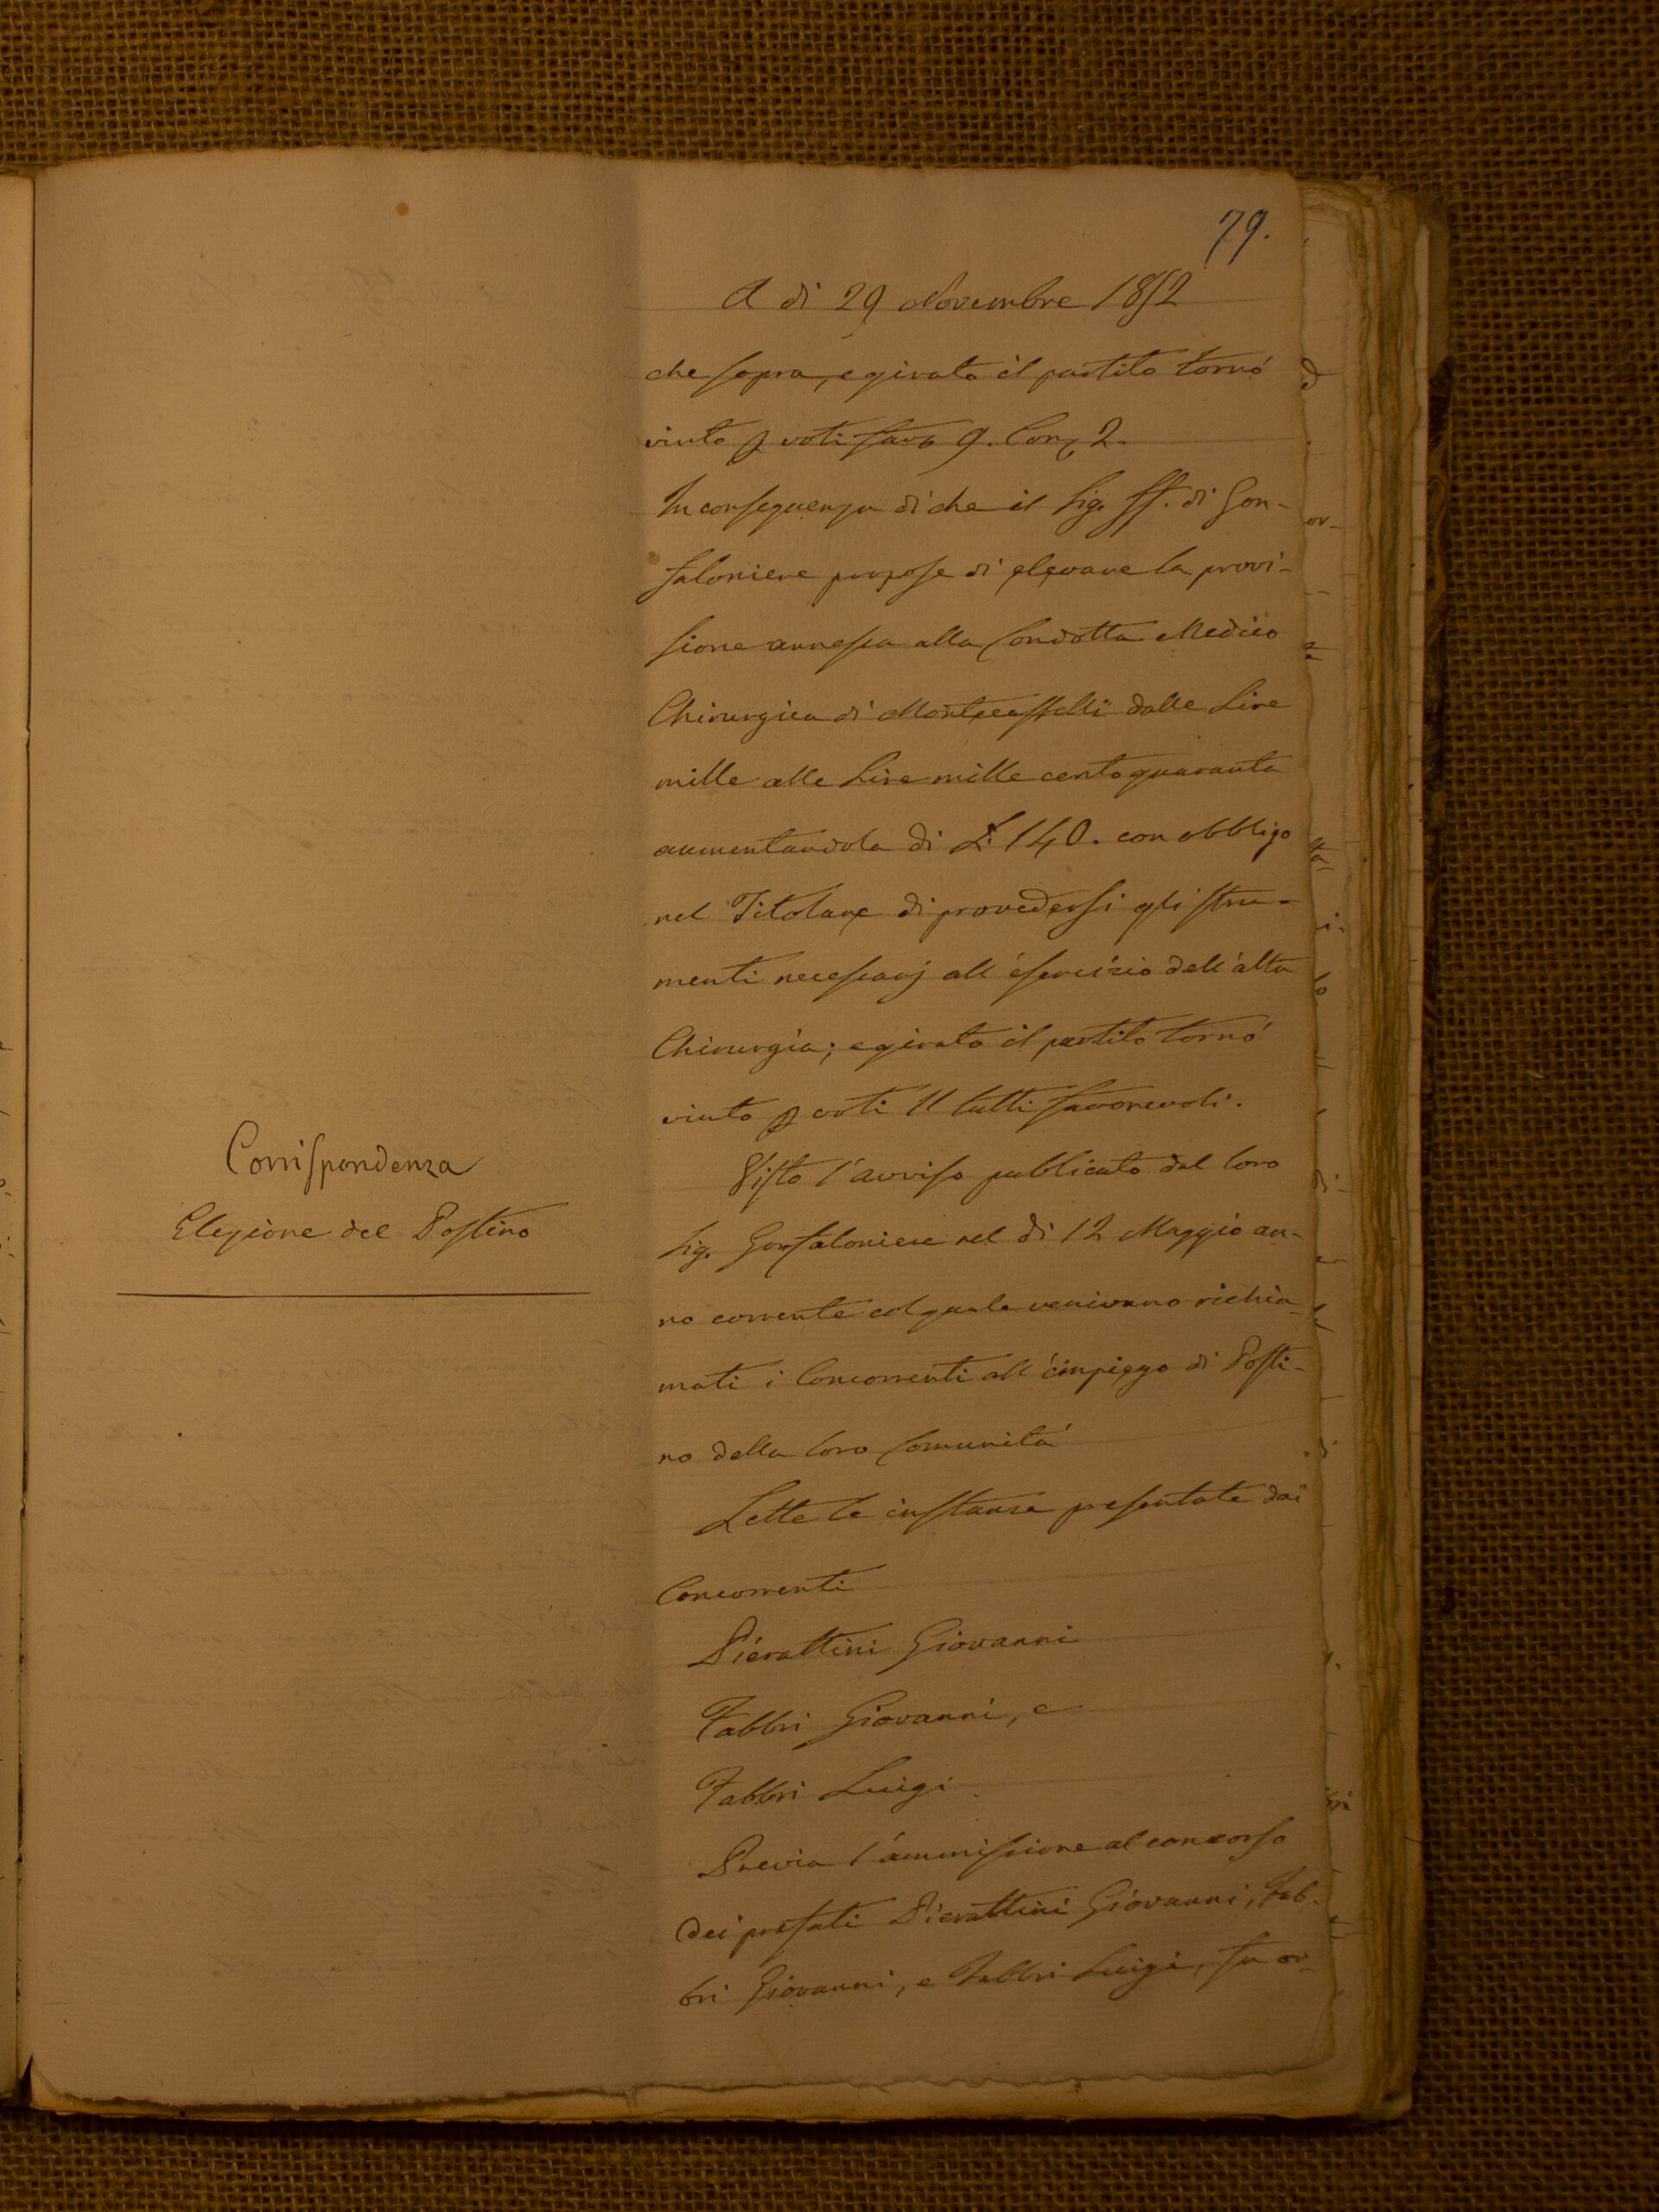 79.
A di 29 Novembre 1852
che sopra, e girato il partito tornò
vinto p voti favo 9. Con 2.
In conseguenza di che il Sig. ff. di Gon-
faloniere propose di elevare la provi-
sione annessa alla Condotta Medico
Chirurgica di Montecastelli dalle Lire
mille alle Lire mille centoquaranta
aumentandola di L. 140. con obbligo
nel Titolare di provedersi gli stru-
menti necessarj all'esercizio dell'alta
Chirurgia; e girato il partito tornò
vinto p voti 11 tutti favorevoli.
Corrispondenza
Elezione del Postino
Visto l'avviso pubblicato dal loro
Sig. Gonfaloniere nel di 12 Maggio an-
no corrente col quale venivano richia-
mati i Concorrenti all'impiego di Posti-
no della loro Comunità
Lette le instanze presentate dai
Concorrenti
Pierattini Giovanni
Fabbri Giovanni, e
Fabbri Luigi
Previa l'ammissione al concorso
dei prefati Pierattini Giovanni, Fab-
bri Giovanni, e Fabbri Luigi, fu or-